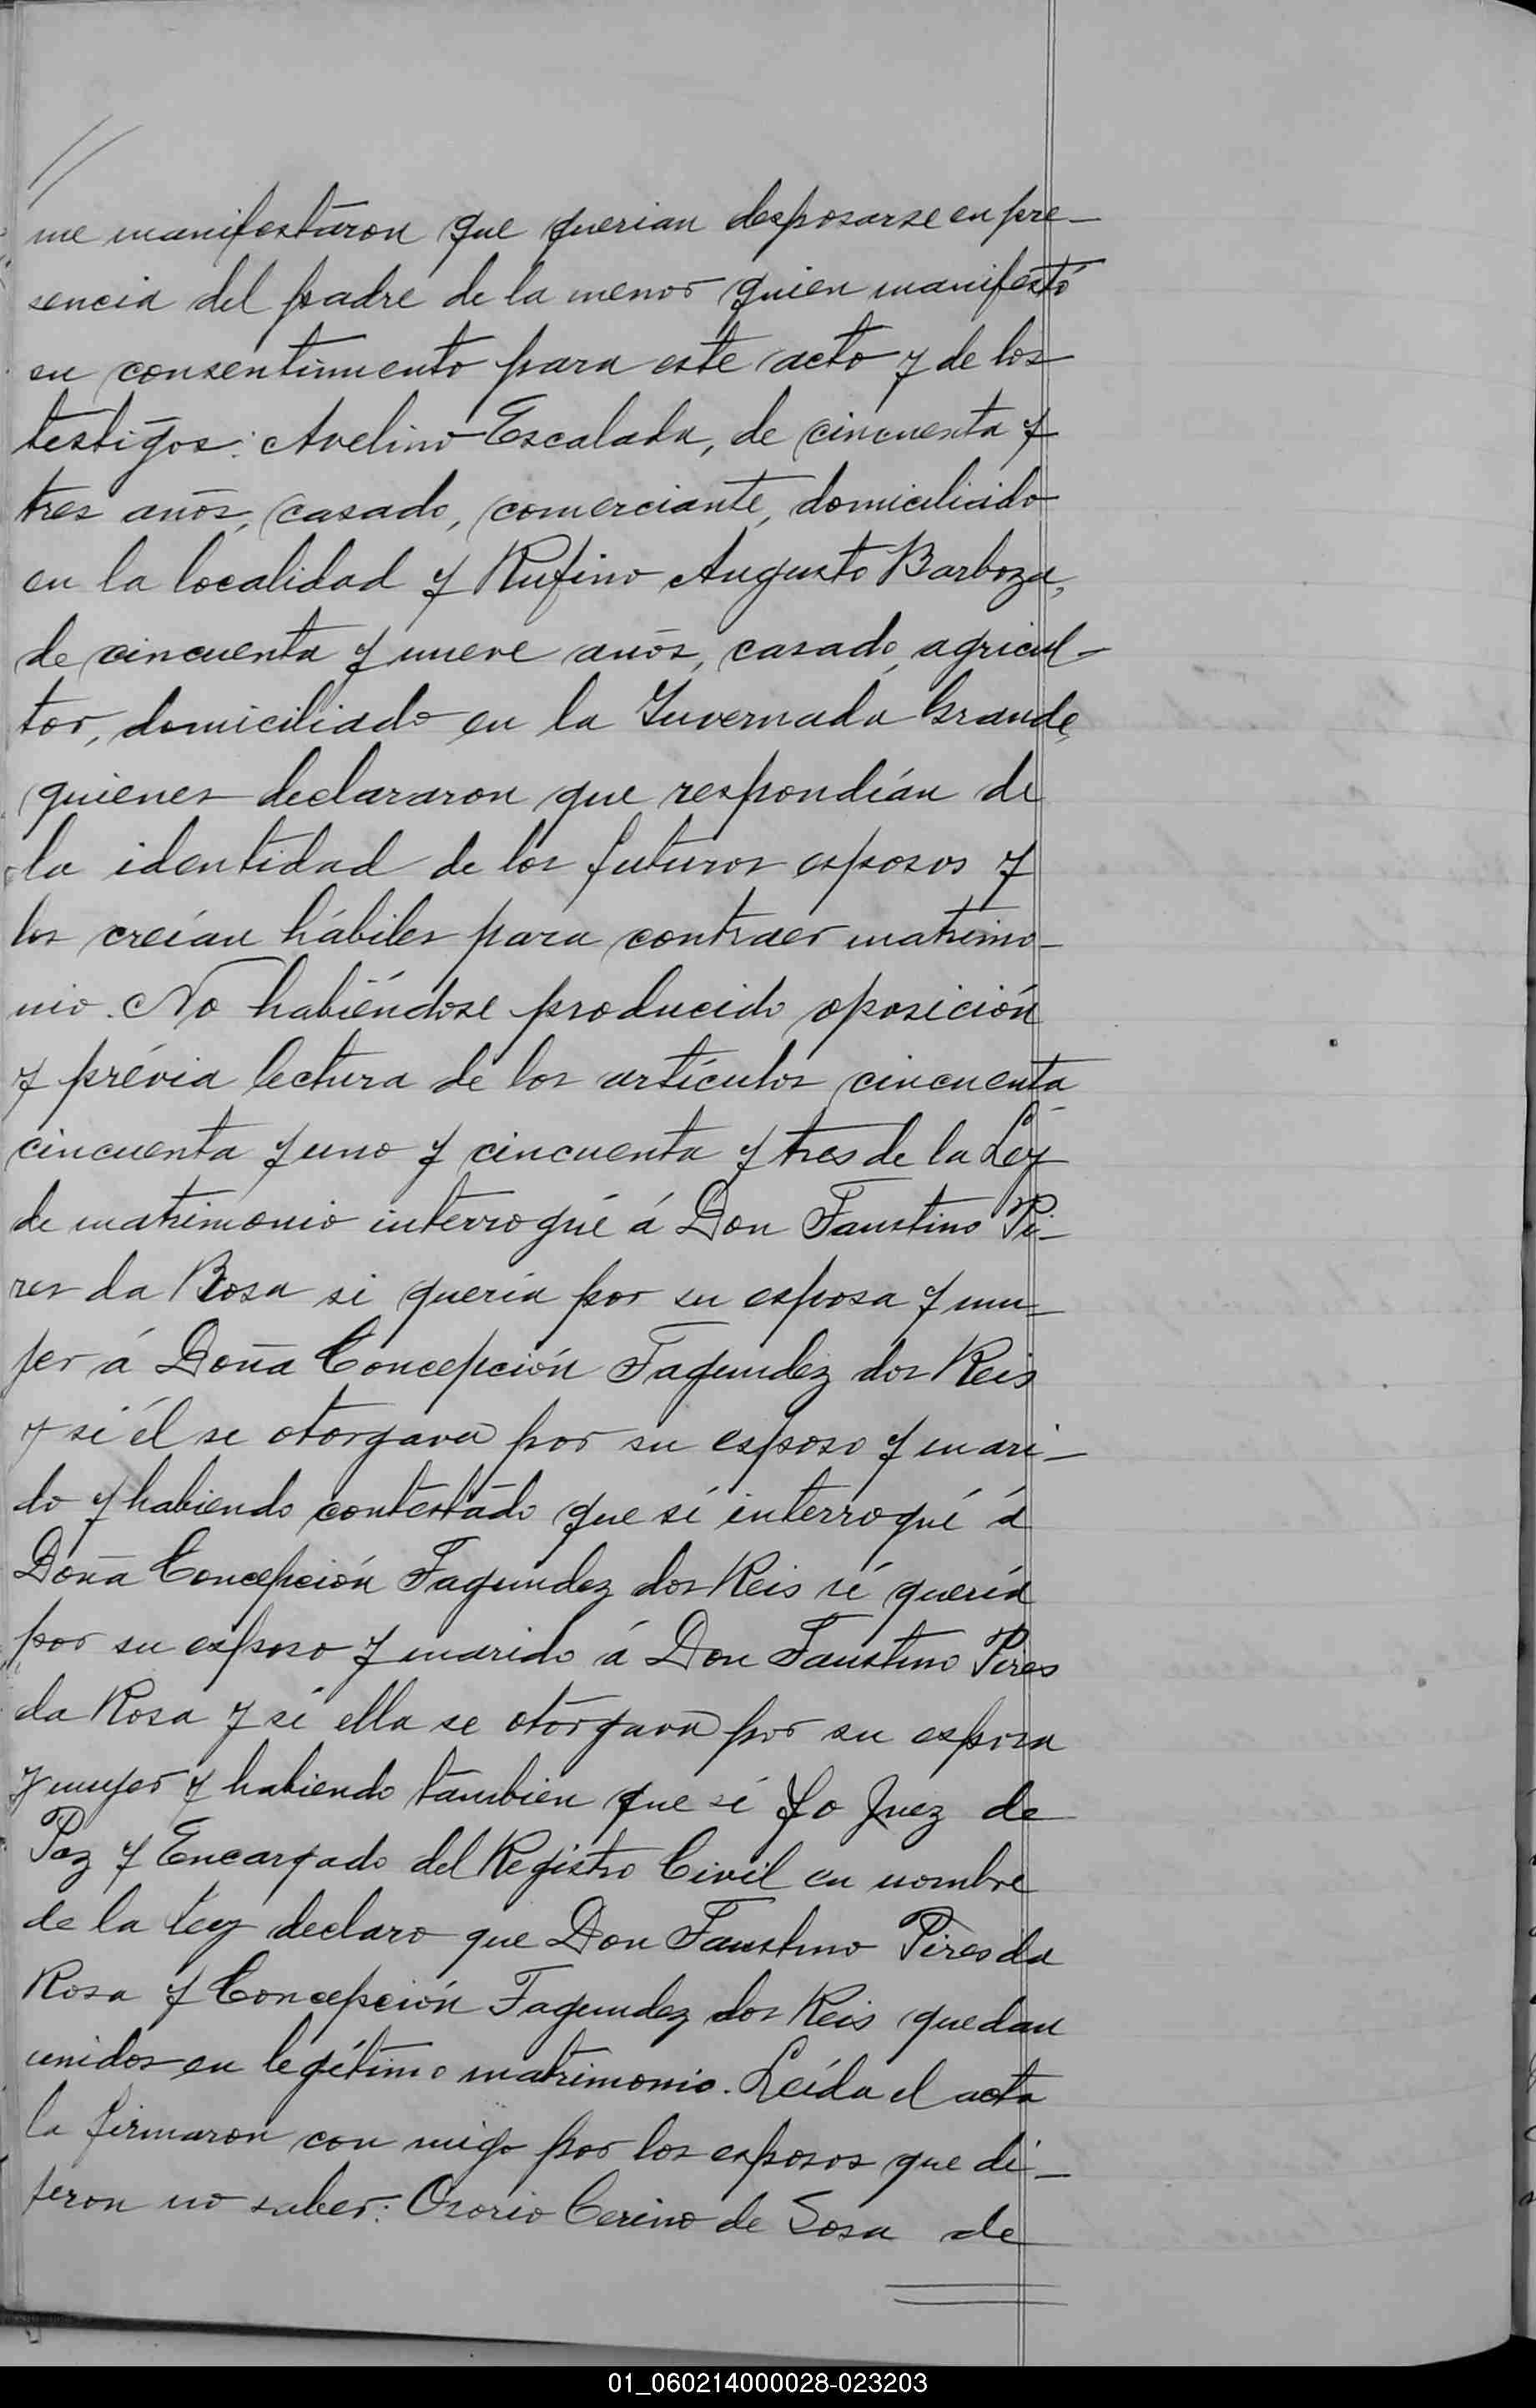 //
me manifestaron que querian desposarse en pre-
sencia del padre de la menor quien manifestó
su consentimiento para este acto y de los
testigos: Avelino Escalada, de cincuenta y
tres años, casado, comerciante, domiciliado
en la localidad y Rufino Augusto Barboza,
de cincuenta y nueve años, casado, agricul-
tor, domiciliado en la Invernada Grande,
quienes declararon que respondían de
la identidad de los futuros esposos y
los creían hábiles para contraer matrimo-
nio. No habiéndose producido oposición
y prévia lectura de los artículos cincuenta
cincuenta y uno y cincuenta y tres de la Ley
de matrimonio interrogué á Don Faustino Pi-
res da Rosa si quería por su esposa y mu-
jer á Doña Concepción Fagundez dos Reis
y si él se otorgava por su esposo y mari-
do y habiendo contestado que sí interrogué á
Doña Concepción Fagundez dos Reis si quería
por su esposo y marido á Don Faustino Pires
da Rosa y si ella se otorgava por su esposa
y mujer y habiendo tambien que sí Yo Juez de
Paz y Encargado del Registro Civil en nombre
de la Ley declaro que Don Faustino Pires da
Rosa y Concepción Fagundez dos Reis quedan
unidos en legítimo matrimonio. Leída el acta
la firmaron con migo por los esposos que di-
jeron no saber: Osorio Cerino de Sosa de
01_060214000028-023203